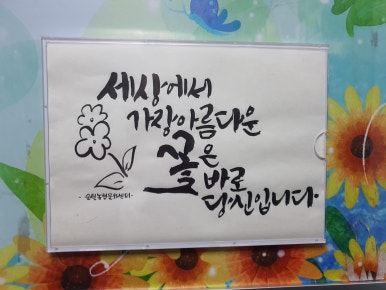 세상에서
가장아름다운
꽃은
바로
당신입니다.